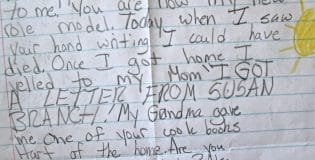 to me. You are now my new
role model. Today when I saw
your hand writing I could have
died. Once I got home I
yelled to my Mom "I GOT
A LETTER FROM SUSAN
BRANCH. My Gandma gave
me one of your cook books
Hart of the home. Are you